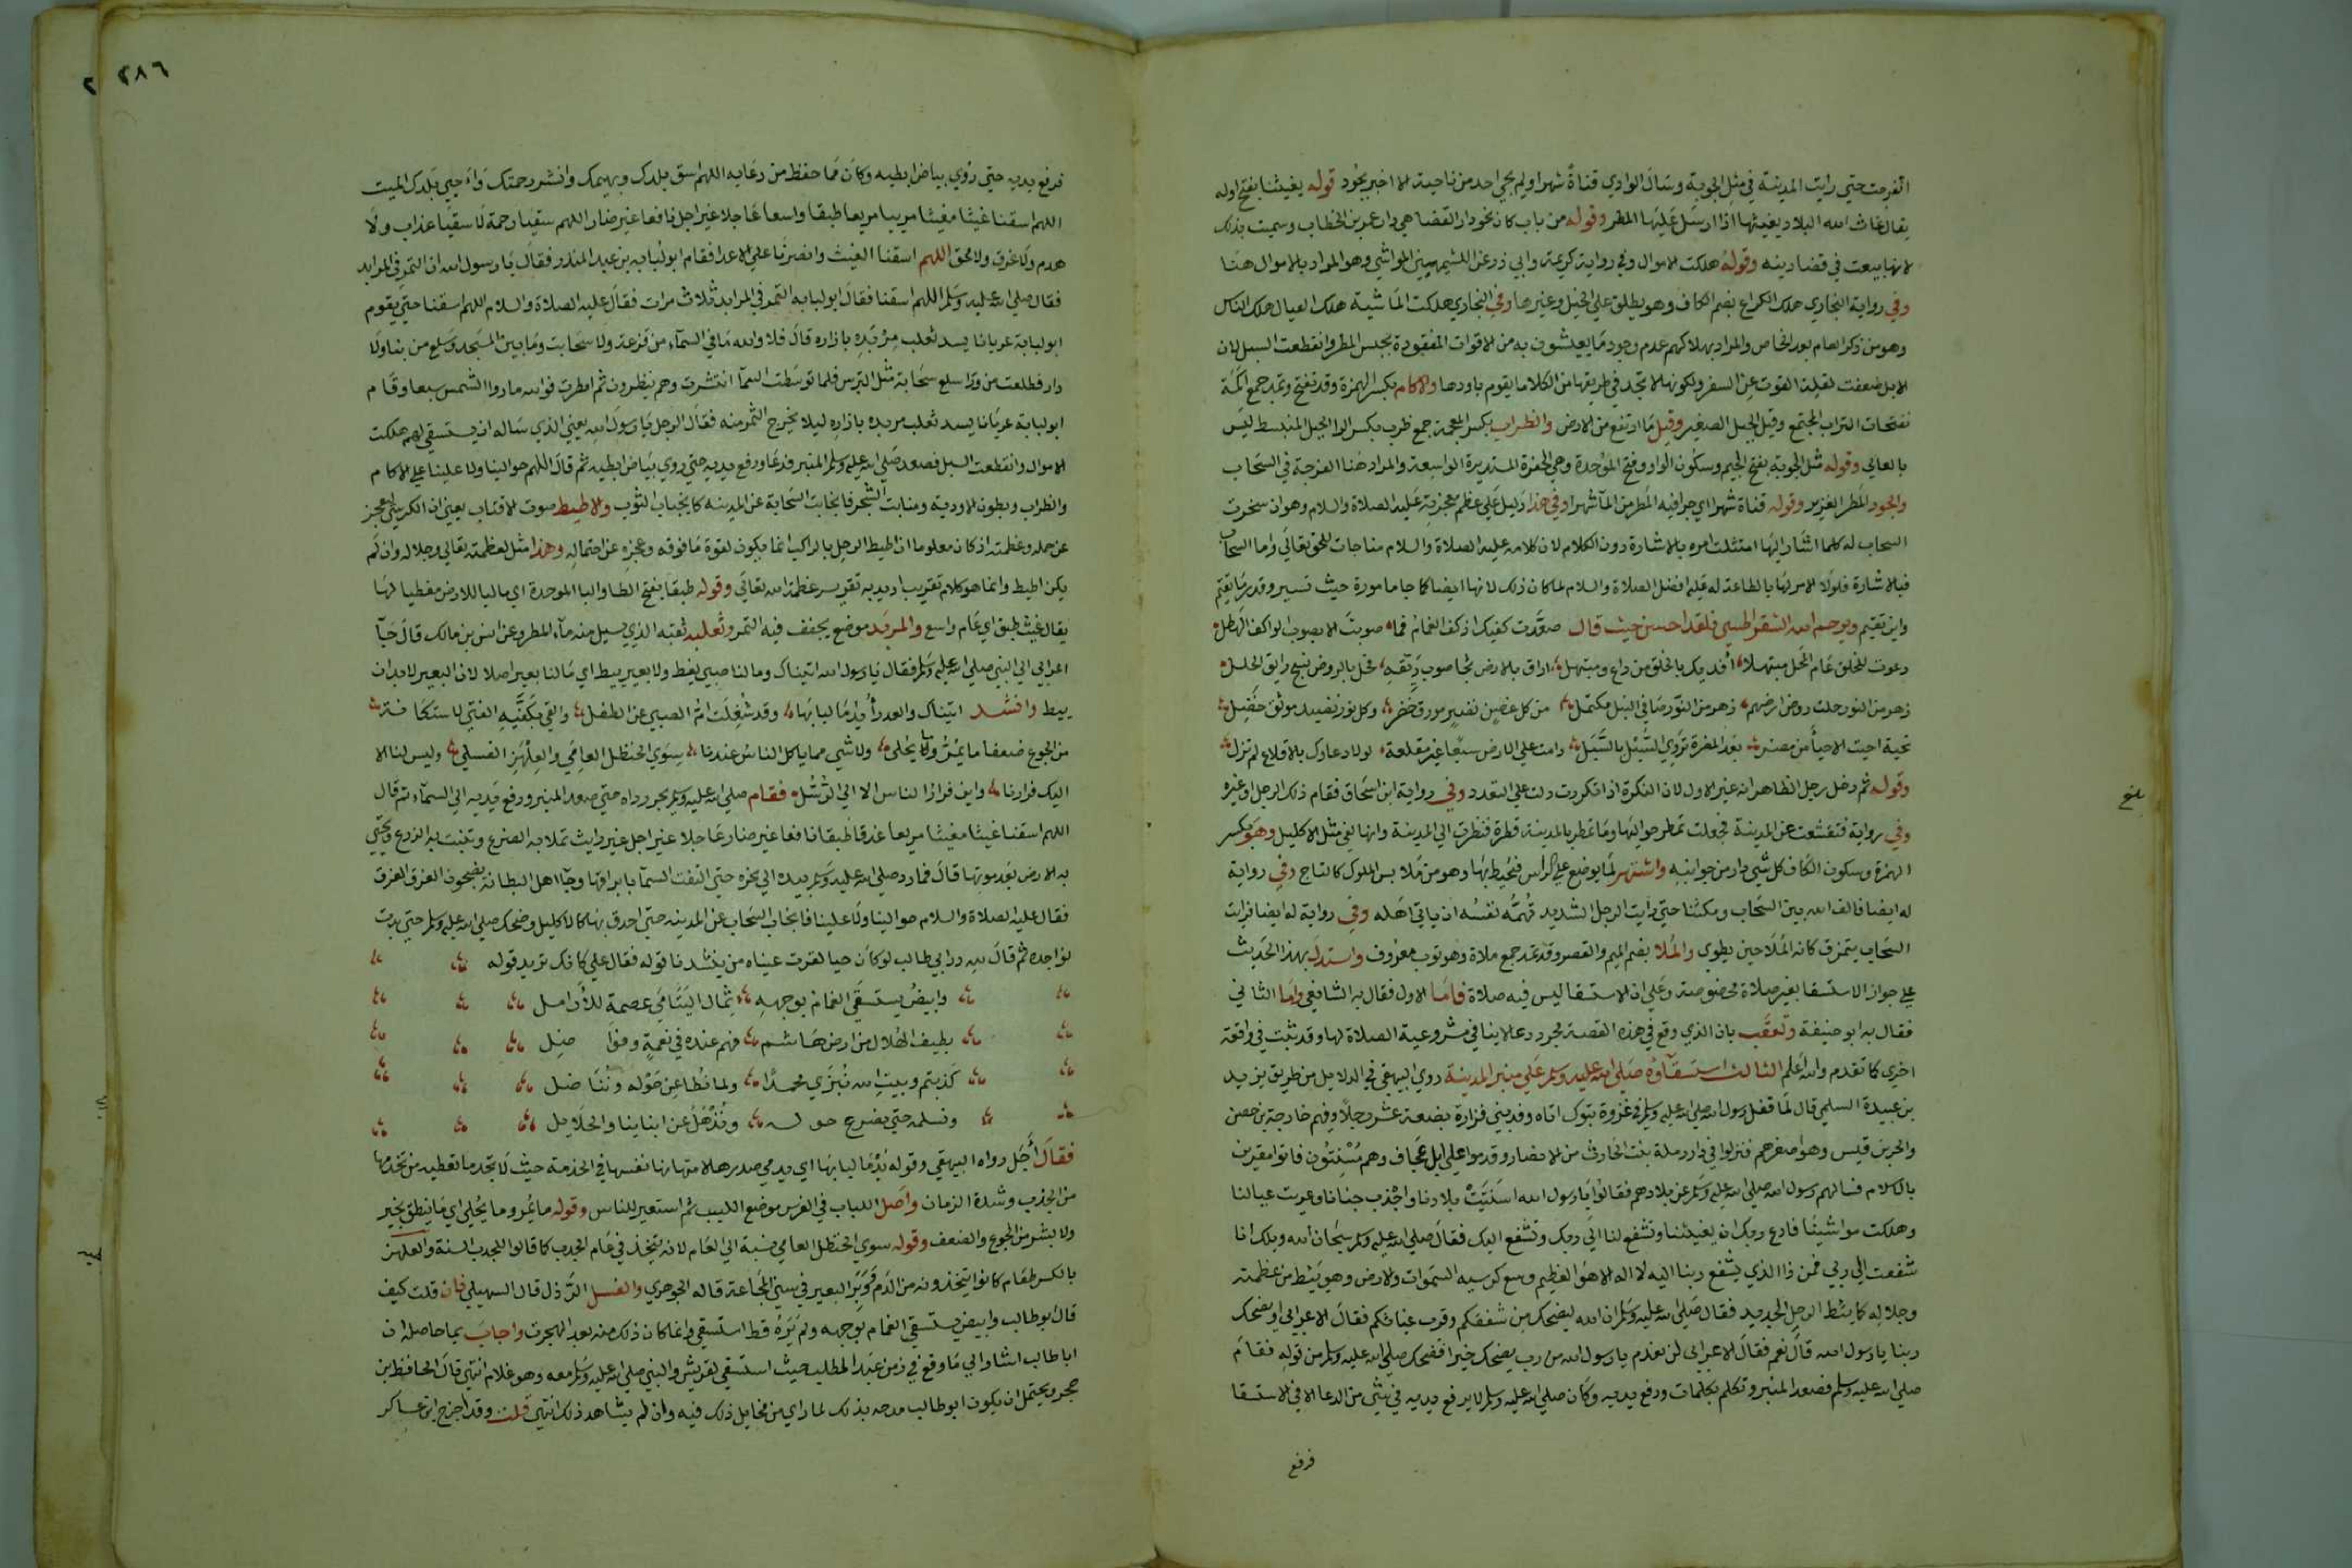 انفرجت حتي رايت المدينة في مثل الجوبة وسال الوادي قناة شهرا ولم يجي احد من ناحية الا اخبر بجود قوله يغيثنا بفتح اوله
يقال غاث الله البلاد يغيثها اذا ارسل عليها المطر وقوله من باب كان نحو دار القضا هي دار عمر بن الخطاب وسميت بذلك
لانها بيعت في قضا دينه وقوله هلكت الاموال وفي رواية كريمة وابي ذر عن الكشميهني المواشي وهو المراد بالاموال هنا
وفي رواية البخاري هلك الكراع بضم الكاف وهو يطلق علي الخيل وغيرها وفي البخاري هلكت الماشية هلك العيال هلك الناس
وهو من ذكر العام بعد الخاص والمراد بهلاكهم عدم وجود ما يعيشون به من الاقوات المفقودة بحبس المطر وانقطعت السبل لان
الابل ضعفت لقلة القوت عن السفر ولكونها لا تجد في طريقها من الكلا ما يقوم باودها والاكام بكسر الهمزة وقد تفتح وتمد جمع اكمة
بفتحات التراب المجتمع وقيل الجبل الصغير وقيل ما ارتفع من الارض والظراب بكسر المعجمة جمع ظرب بكسر الرا الجبل المنبسط ليس
بالعالي وقوله مثل الجوبة بفتح الجيم وسكون الواو وفتح الموحدة وهي الحفرة المستديرة الواسعة والمراد هنا الفرجة في السحاب
والجود المطر الغزير وقوله قناة شهرا اي جرا فيه المطر من المآ شهرا وفي هذا دليل علي عظم معجزته عليه الصلاة والسلام وهو ان سخرت
السحاب له كلما اشار اليها امتثلت امره بالاشارة دون الكلام لان كلامه عليه الصلاة والسلام مناجات للحق تعالي واما السحاب
فبالاشارة فلولا الامر لها بالطاعة له عليه افضل الصلاة والسلام لما كان ذلك لانها ايضا كما جا مامورة حيث تسير وقدر ما تقيم
واين تقيم ويرحم الله الشقراطسي فلقد احسن حيث قال صعّدت كفيك اذ كف الغمام فما صوبت الا بصوب الواكف الهطل
دعوت للخلق عام المحل مبتهلا افديك بالخلق من داع ومبتهل اراق بالارض ثجا صوب ريقه فحل بالروض نسج رايق الحلل
زهر من النور حلت روض ارضهم زهر من النور ضافي النبل مكتمل من كل غصن نضير مورق خضر وكل نور نضيد مونق خضل
تحية احيت الاحيآ من مضر بعد المضرة تروي السُّبل بالسَّبل دامت علي الارض سبعا غير مقلعة لولا دعاوك بالاقلاع لم تزل
وقوله ثم دخل رجل الظاهر انه غير الاول لان النكرة اذا تكررت دلت علي التعدد وفي رواية ابن اسحاق فقام ذلك الرجل او غيره
وفي رواية فتقشعت عن المدينة فجعلت تمطر حواليها وما تمطر بالمدينة قطرة فنظرت الي المدينة وانها لفي مثل الاكليل وهو بكسر
الهمزة وسكون الكاف كل شي دار من جوانبه واشتهر لما يوضع علي الراس فيحيط بها وهو من ملابس الملوك كالتاج وفي رواية
له ايضا فالف الله بين السحاب ومكثنا حتي رايت الرجل الشديد تهمه نفسه ان ياتي اهله وفي رواية له ايضا فرايت
السحاب يتمزق كانه الملا حين يطوي والملا بضم الميم والقصر وقد تمد جمع ملاة وهو ثوب معروف واستدل بهذا الحديث
علي جواز الاستسقا بغير صلاة مخصوصة وعلي ان الاستسقا ليس فيه صلاة فاما الاول فقال به الشافعي واما الثاني
فقال به ابو حنيفة وتعقب بان الذي وقع في هذه القصة مجرد دعا لا ينافي مشروعية الصلاة لها وقد بينت في واقعة
اخري كما تقدم والله اعلم الثالث استسقآوه صلي الله عليه وسلم علي منبر المدينة روي البيهقي في الدلايل من طريق يزيد
بن عبيدة السلمي قال لما قفل رسول الله صلي الله عليه وسلم من غزوة تبوك اتاه وفد بني فزارة بضعة عشر رجلا وفيهم خارجة بن حصن
والحر بن قيس وهو اصغرهم فنزلوا في دار رملة بنت الحارث من الانصار وقدموا علي ابل عجاف وهم مسنتون فاتوا مقرين
بالاسلام فسالهم رسول الله صلي الله عليه وسلم عن بلادهم فقالوا يا رسول الله اسنتت بلادنا واجدب جنابنا وعريت عيالنا
وهلكت مواشينا فادع ربك ان يغيثنا وتشفع لنا الي ربك وتشفع اليك فقال صلي الله عليه وسلم سبحان الله ويلك انا
شفعت الي ربي فمن ذا الذي يشفع ربنا اليه لا اله الا هو العظيم وسع كرسيه السموات والارض وهو يئط من عظمته
وجلاله كما يئط الرحل الجديد فقال صلي الله عليه وسلم ان الله ليضحك من شفقكم وقرب غياثكم فقال الاعرابي او يضحك
ربنا يا رسول الله قال نعم فقال الاعرابي لن نعدم يا رسول الله من رب يضحك خيرا فضحك صلي الله عليه وسلم من قوله فقام
صلي الله عليه وسلم فصعد المنبر وتكلم بكلمات ورفع يديه وكان صلي الله عليه وسلم لا يرفع يديه في شئ من الدعا الا في الاستسقا
فرفع
بلغ
٣٨٦
فرفع يديه حتي رؤي بياض ابطيه وكان مما حفظ من دعايه اللهم اسق بلدك وبهيمك وانشر رحمتك واحيي بلدك الميت
اللهم اسقنا غيثا مغيثا مريا مريعا طبقا واسعا عاجلا غير اجل نافعا غير ضار اللهم سقيا رحمة لا سقيا عذاب ولا
هدم ولا غرق ولا محق اللهم اسقنا الغيث وانصرنا علي الاعدا فقام ابو لبابه بن عبد المنذر فقال يا رسول الله ان التمر في المرابد
فقال صلي الله عليه وسلم اللهم اسقنا فقال ابو لبابه التمر في المرابد ثلاث مرات فقال عليه الصلاة والسلام اللهم اسقنا حتي يقوم
ابو لبابة عريانا يسد ثعلب مربده بازاره قال فلا والله ما في السمآء من قزعة ولا سحاب وما بين المسجد وسلع من بنا ولا
دار فطلعت من ورا سلع سحابة مثل الترس فلما توسطت السمآ انتشرت وهم ينظرون ثم امطرت فوالله ما رووا الشمس سبعا وقام
ابو لبابة عريانا يسد ثعلب مربده بازاره ليلا يخرج التمر منه فقال الرجل يا رسول الله يعني الذي ساله ان يستسقي لهم هلكت
الاموال وانقطعت السبل فصعد صلي الله عليه وسلم المنبر فدعا ورفع يديه حتي روي بياض ابطيه ثم قال اللهم حوالينا ولا علينا علي الاكام
والظراب وبطون الاودية ومنابت الشجر فانجابت السحابة عن المدينه كما ينجاب الثوب والاطيط صوت الاقتاب يعني ان الكرسي ليعجز
عن حمله وعظمته اذ كان معلوما ان اطيط الرحل بالراكب انما يكون لقوة ما فوقه وعجزه عن احتماله وهذا مثل لعظمته تعالي وجلاله وان لم
يكن اطيط وانما هو كلام تقريب اريد به تقرير عظمة الله تعالي وقوله طبقا بفتح الطا والبا الموحدة اي ماليا للارض مغطيا لها
يقال غيث طبق اي عام واسع والمربد موضع يجفف فيه التمر وثعلبه ثقبه الذي يسيل منه مآء المطر وعن انس بن مالك قال جآ
اعرابي الي النبي صلي الله عليه وسلم فقال يا رسول الله اتيناك وما لنا صبي يغط ولا بعير يئط اي ما لنا بعير اصلا لان البعير لا بد ان
يئط وانشد اتيناك والعذرآ يدما لبانها وقد شغلت ام الصبي عن الطفل والقي بكفيه الفتي لاستكانة
من الجوع ضعفا ما يمر ولا يحلي ولا شي مما ياكل الناس عندنا سوي الحنظل العامي والعلهز الفسلي وليس لنا الا
اليك فرارنا واين فرار الناس الا الي الرسل فقام صلي الله عليه وسلم يجر رداه حتي صعد المنبر ورفع يديه الي السمآء ثم قال
اللهم اسقنا غيثا مغيثا مريعا غدقا طبقا نافعا غير ضار عاجلا غير اجل غير رايث تملا به الضرع وتنبت به الزرع وتحيي
به الارض بعد موتها قال فما رد صلي الله عليه وسلم يديه الي نحره حتي التفت السمآ بابراقها وجآ اهل البطانة يضجون الغرق الغرق
فقال عليه الصلاة والسلام حوالينا ولا علينا فانجاب السحاب عن المدينه حتي احدق بها كالاكليل وضحك صلي الله عليه وسلم حتي بدت
نواجده ثم قال لله در ابي طالب لو كان حيا لقرت عيناه من ينشدنا قوله فقال علي كانك تريد قوله
وابيضُ يستسقَي الغمام بوجهه ثمال اليتامي عصمة للأرامل
يطيف الهلال من ارض هاشم فهم عنده في نعمة وفوا ضل
كذبتم وبيت الله نُبزَي محمدا ولما نطاعن حوله ونُنا ضل
ونسلمه حتي يضرع حو له ونُذهَل عن ابناينا والحلايل
فقال أجَل رواه البيهقي وقوله يُدما لبانها اي يدمي صدرها لامتهانها نفسها في الخدمة حيث لا تجد ما تعطيه من تخدمها
من الجدب وشدة الزمان واصل اللباب في الفرس موضع اللبب ثم استعير للناس وقوله ما يمر وما يحلي اي ما ينطق بخير
ولا بشر من الجوع والضعف وقوله سوي الحنظل العامي نسبة الي العام لانه يتخذ في عام الجدب كما قالوا للجدب السنة والعلهز
بالكسر طعام كانوا يتخذونه من الدم ووبر البعير في سني المجاعة قاله الجوهري والفسل الرذل قال السهيلي فان قلت كيف
قال ابو طالب وابيض يستسقي الغمام بوجهه ولم يره قط استسقي وانما كان ذلك منه بعد الهجرت واجاب بما حاصله ان
ابا طالب اشار الي ما وقع في زمن عبد المطلب حيث استسقي لقريش والنبي صلي الله عليه وسلم معه وهو غلام انتهي قال الحافظ بن
حجر ويحتمل ان يكون ابو طالب مدحه بذلك لما راي من مخايل ذلك فيه وان لم يشاهد ذلك انتهي قلت وقد اخرج ابن عساكر